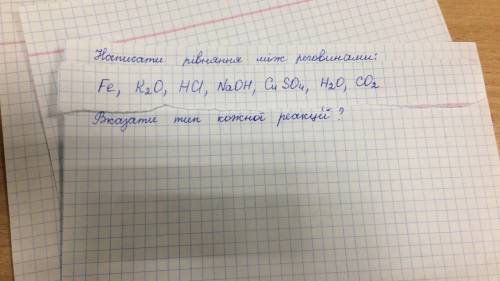 Написати рівняння між речовинами:
Fe, K2O, HCl, NaOH, CuSO4, H2O, CO2
Вказати тип кожної реакції?